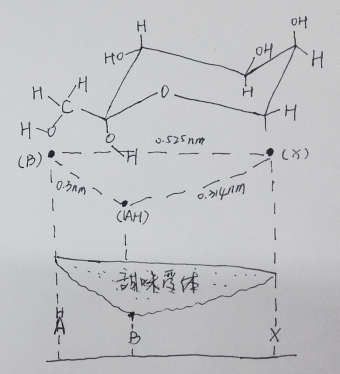 OH
H
OH
HO
H
H
H
C
O
H
H
H
O
O
H
(B)
0.525nm
(X)
0.3nm
0.314nm
(AH)
甜味受体
AH
B
X